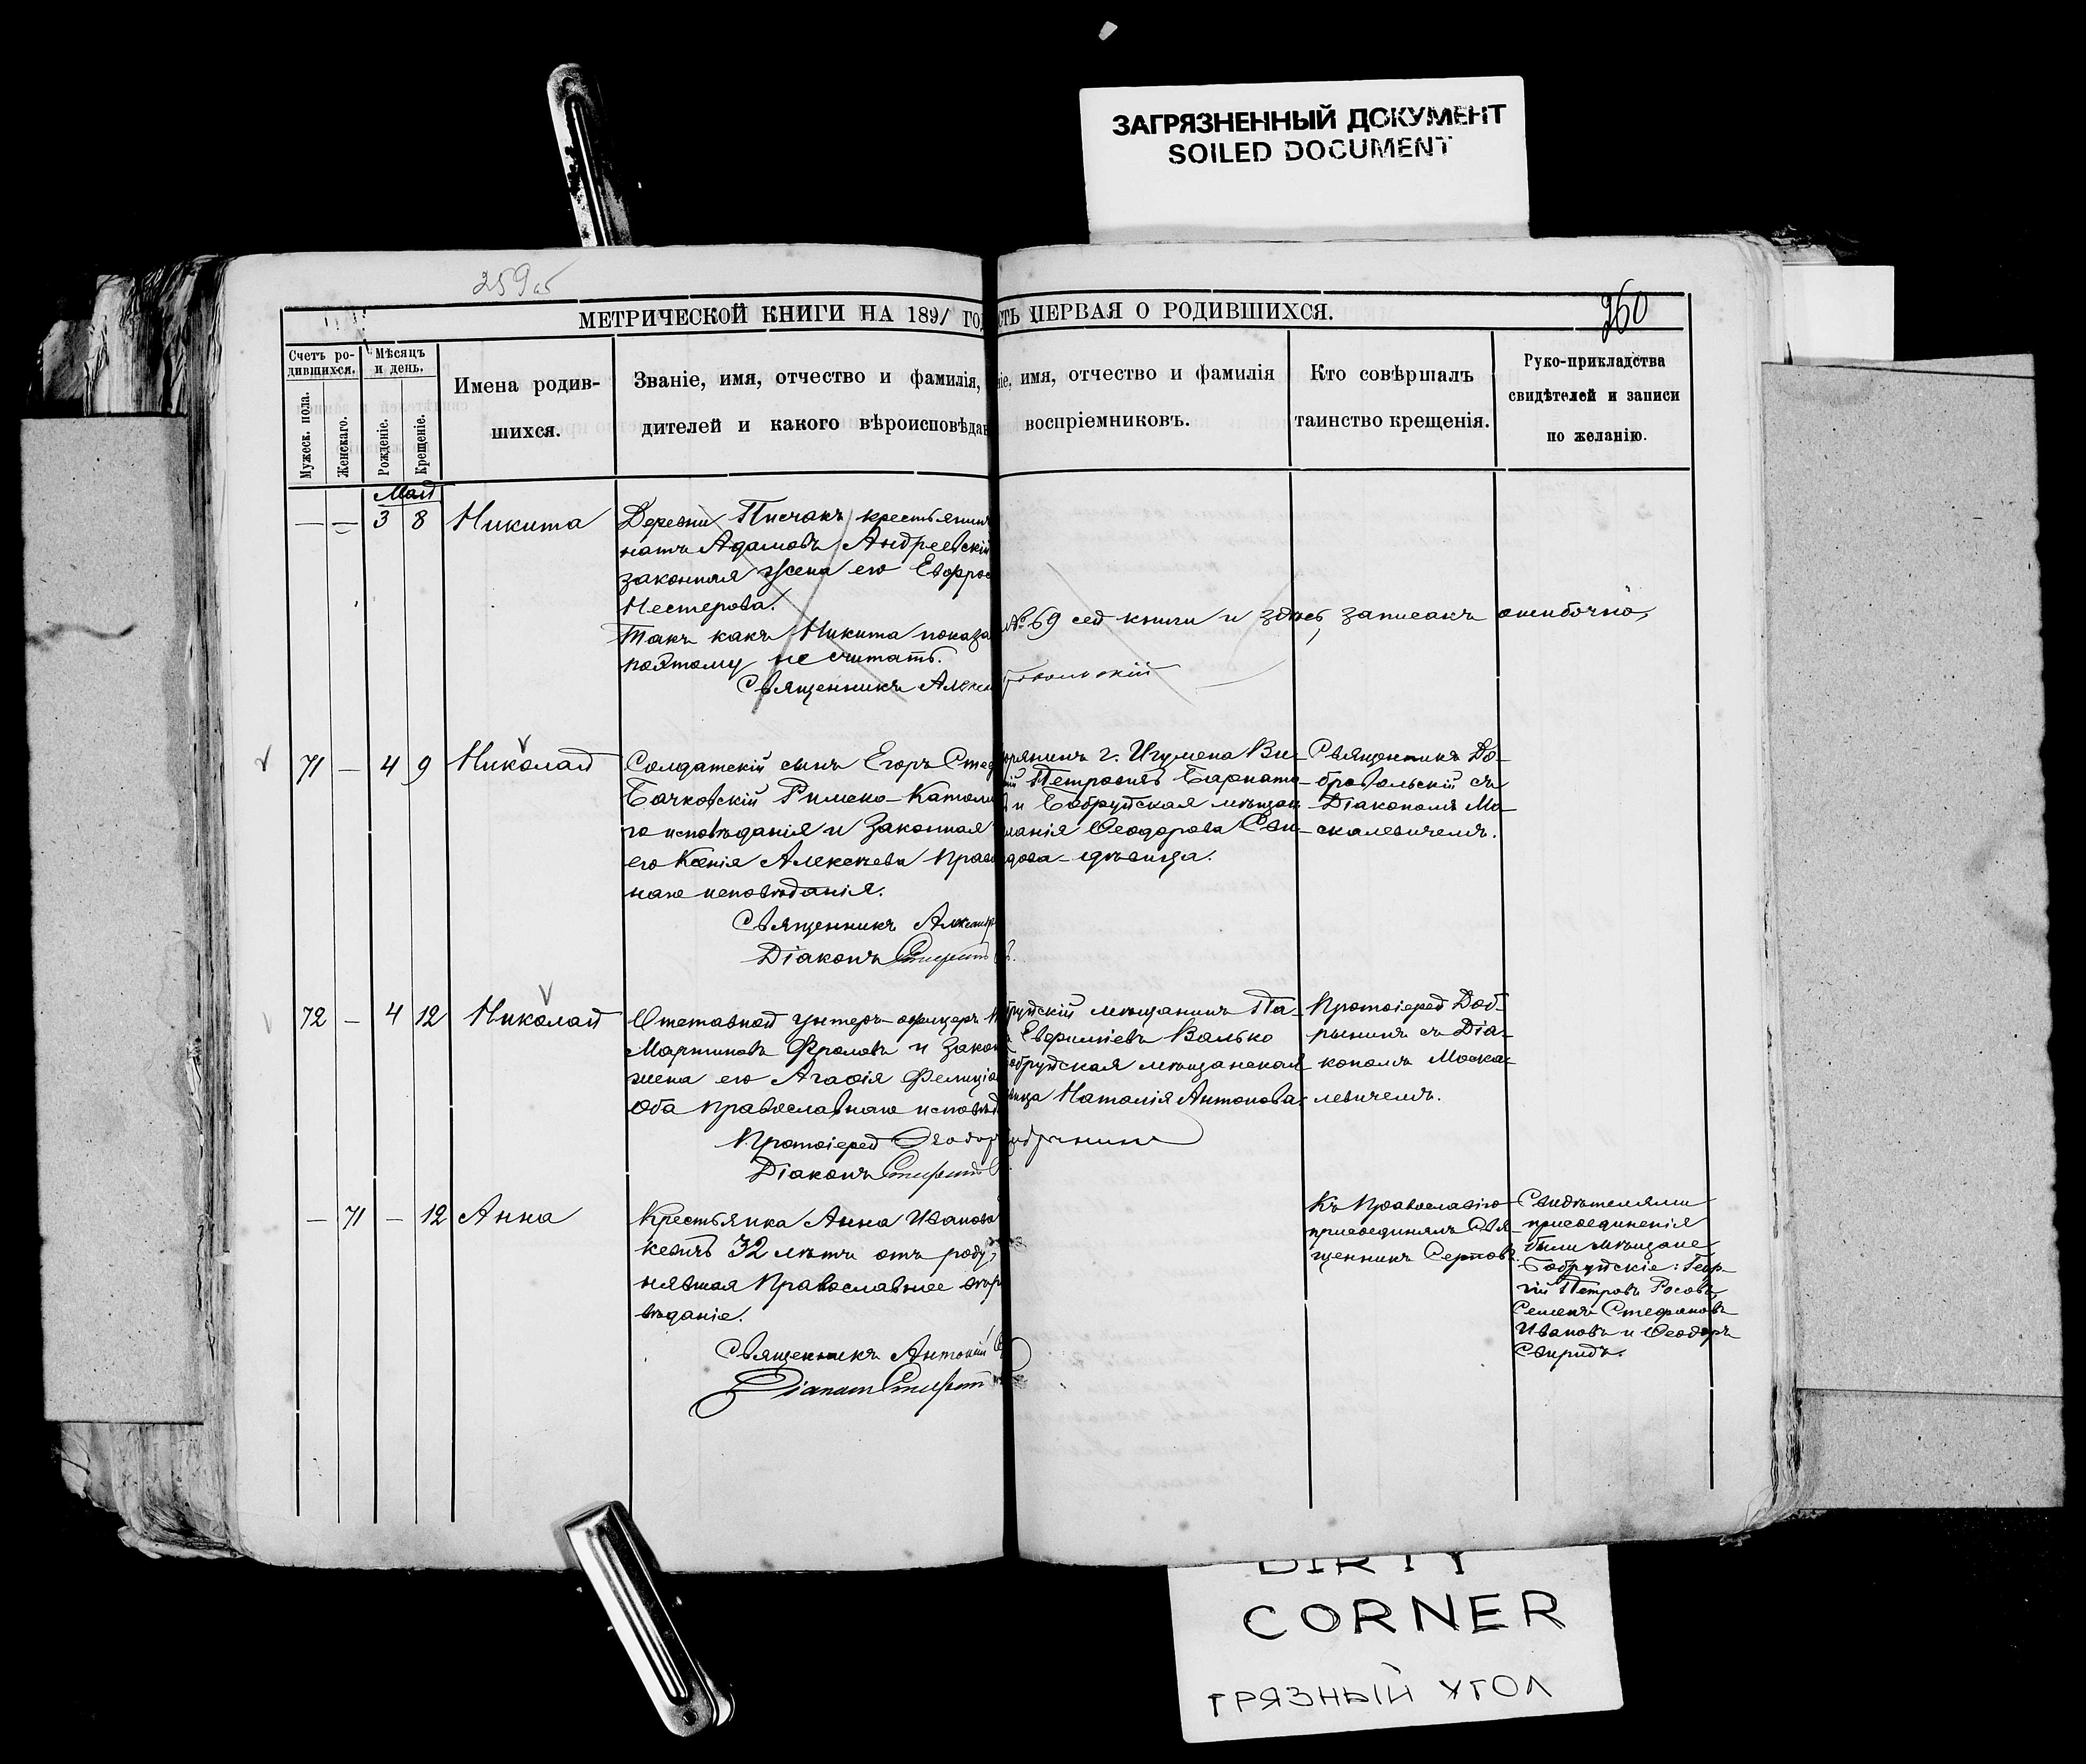 ЗАГРЯЗНЕННЫЙ ДОКУМЕНТ
SOILED DOCUMENT
259об
МЕТРИЧЕСКОЙ КНИГИ НА 1891 ГОД
СТЬ ПЕРВАЯ О РОДИВШИХСЯ.
260
Счетъ ро-
дившихся.
Мужеск. пола.
Женскаго.
Мѣсяцъ
и день.
Рожденіе.
Крещеніе.
Имена родив-
шихся.
Званіе, имя, отчество и фамилія,
дителей и какого вѣроисповѣдан
ніе, имя, отчество и фамилія
воспріемниковъ.
Кто совѣршалъ
таинство крещенія.
Руко-прикладства
свидѣтелей и записи
по желанію.
Май
— — 3 8 Никита
Деревни Писчакъ крестьянин
натъ Адамовъ Андреевскій
законная жена его Евфрос
Нестерова.
Такъ какъ Никита показа
№ 69 сей книги и здѣсь записанъ ошибочно,
поэтому не считать.
Священникъ Алекса
71 — 4 9 Николай
Солдатскій сынъ Егоръ Стеф
Бачковскій Римско-Католи
го исповѣданія и законная
его Ксенія Алексѣева право
наго исповѣданія.
Священникъ Александр
Діаконъ
орянинъ г. Игумена Ви-
ій Петровичъ Барнато
й и Бобруйская мѣщан
ланія Ѳеодорова Сви-
дова - дѣвица.
Священникъ До-
бровольскій съ
Діакономъ Мо-
скалевичемъ.
72 — 4 12 Николай
Отставной унтеръ-офицеръ
Мартиновъ Фроловъ и закон
жена его Агафія Фелиціа
Оба православнаго исповѣд
Протоіерей Ѳеодор
Діаконъ
бруйскій мѣщанинъ Па-
Евфиміевъ Валько
обруйская мѣщанская
вица Наталія Антонова.
Протоіерей Доб-
рынинъ съ Діа-
кономъ Моска-
левичемъ.
— 71 — 12 Анна
Крестьянка Анна Иванова
кевичъ 32 лѣтъ отъ роду,
нявшая Православное вѣр
вѣданіе.
Священникъ Антоній
Діаконъ
Къ Православію
присоединялъ Свя-
щенникъ Серновъ
Свидѣтелями
присоединенія
были мѣщане
Бобруйскіе: Геор-
гій Петровъ Росовъ,
Семенъ Стефановъ
Ивановъ и Ѳеодоръ
Свиридъ.
DIRTY
CORNER
ГРЯЗНЫЙ УГОЛ